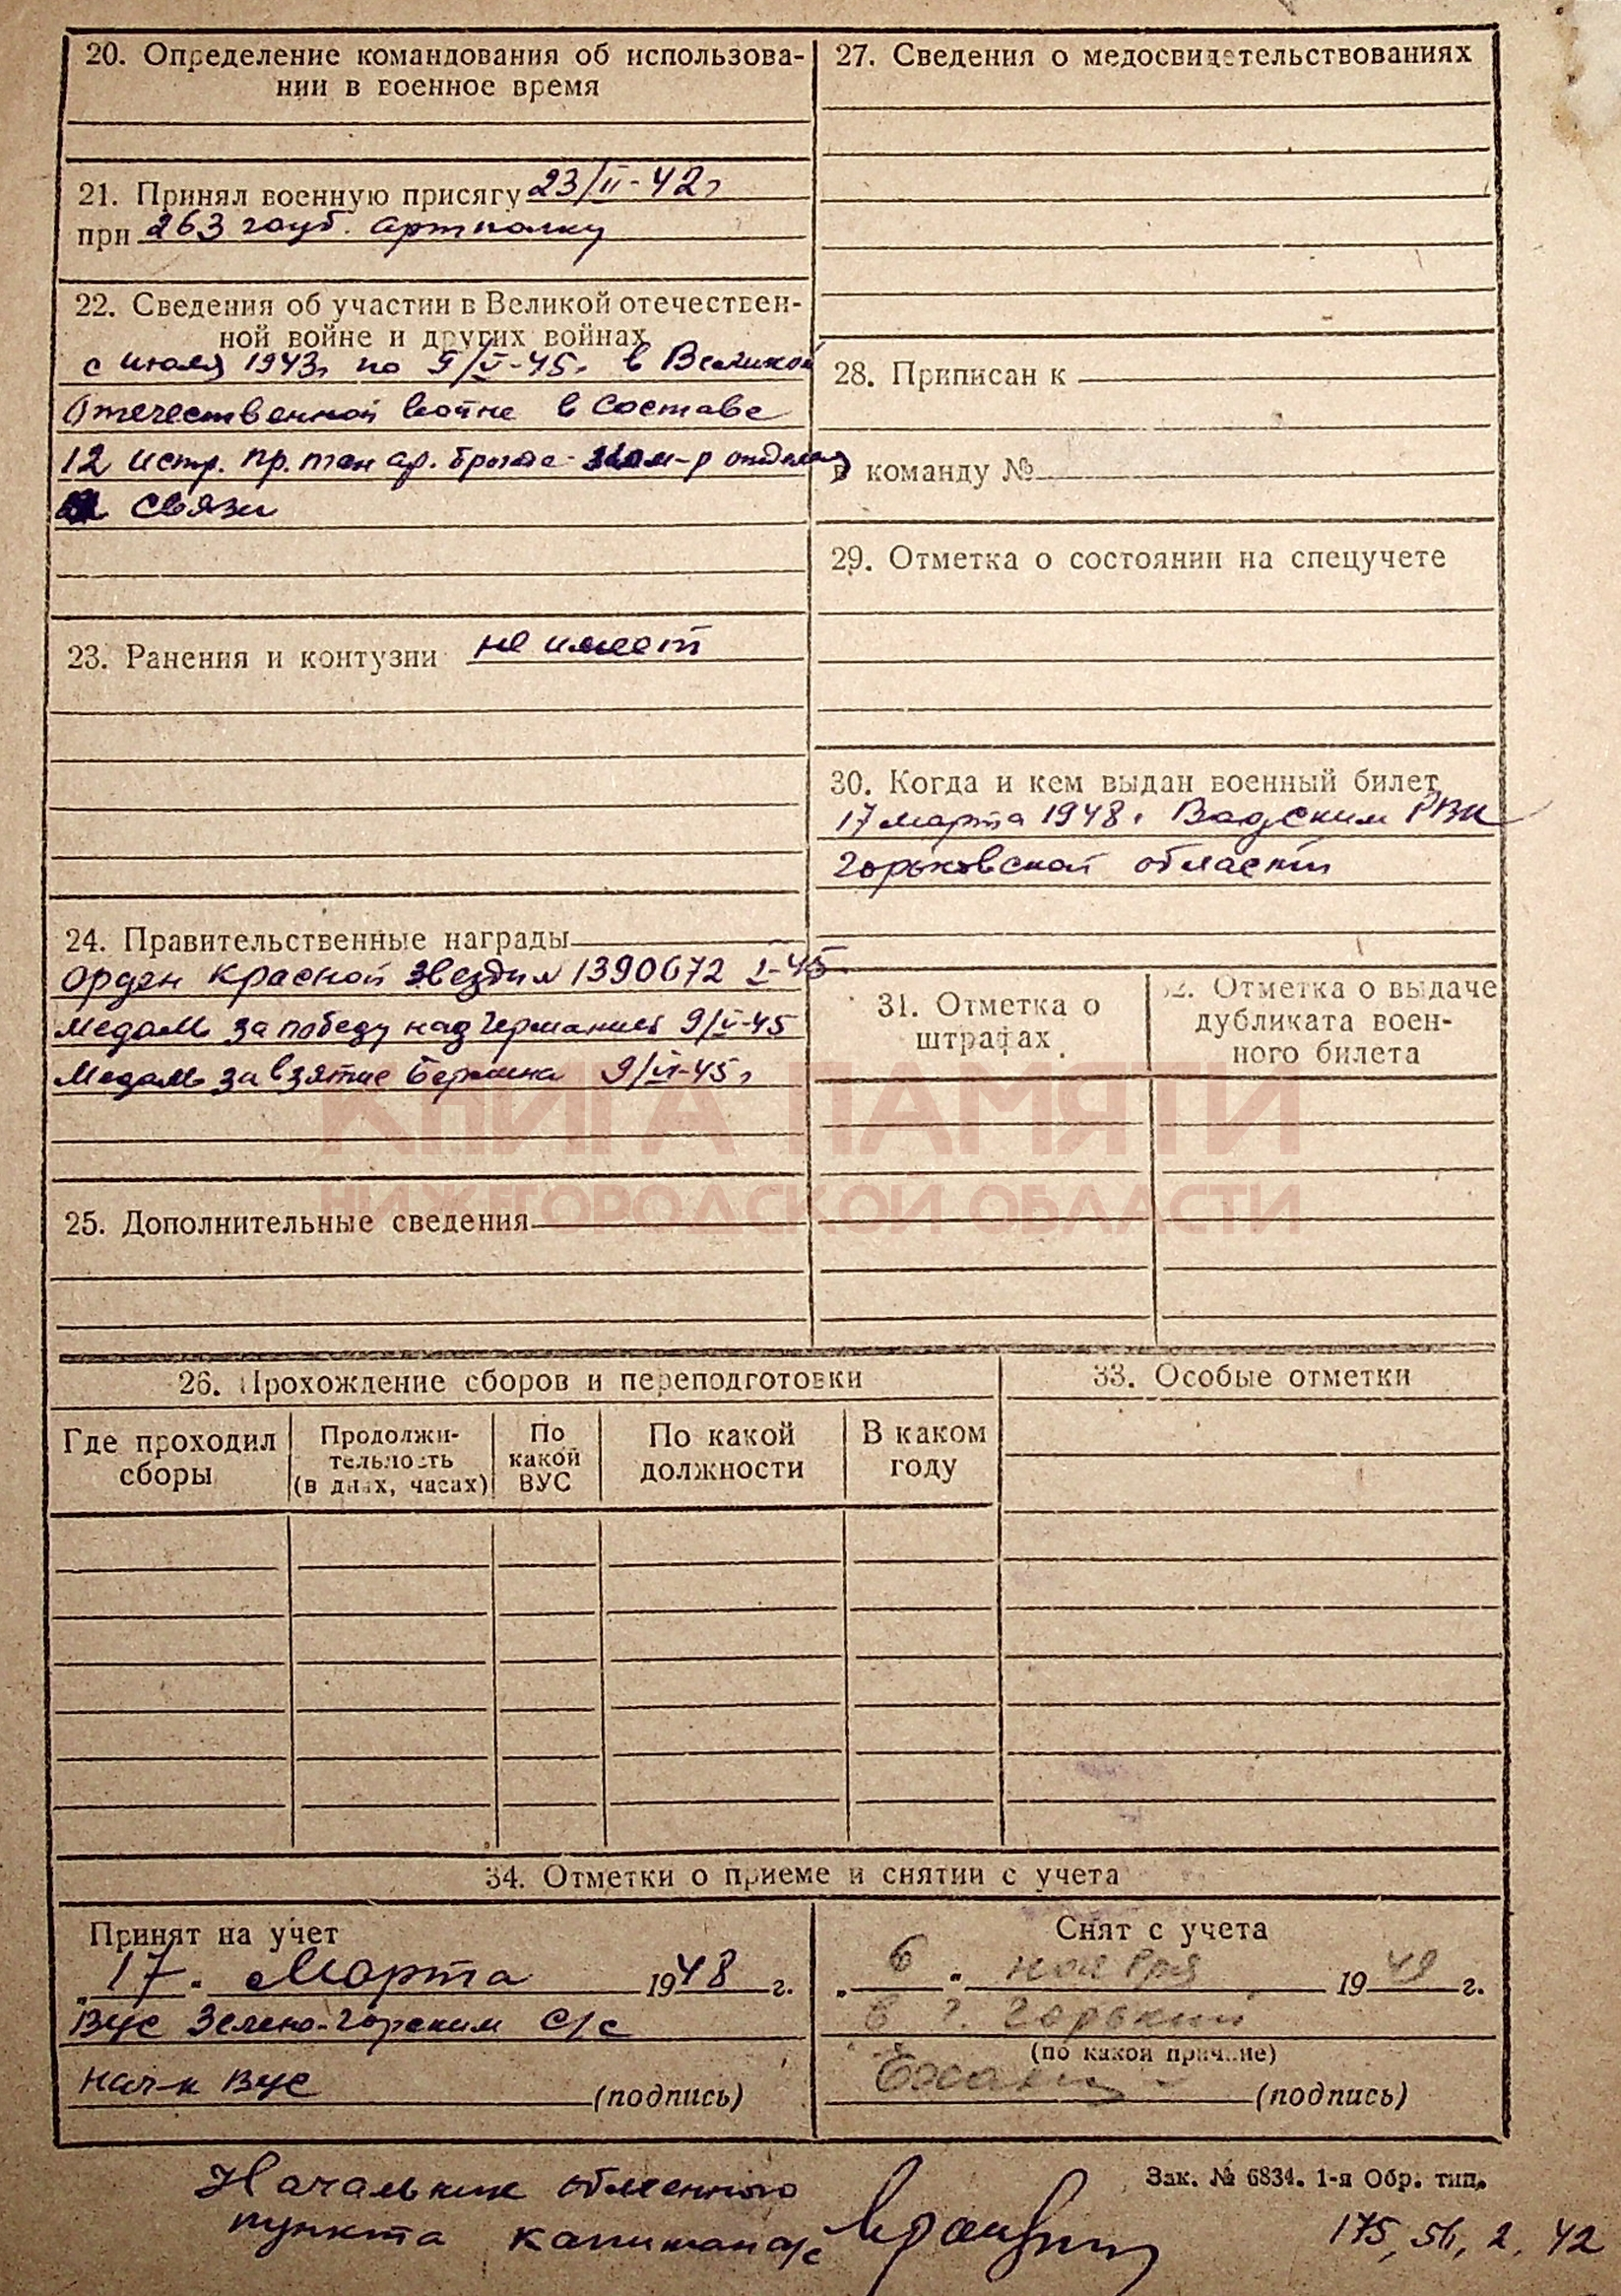 20. Определение командования об использова-
нии в военное время
21. Принял военную присягу 23/II-42г
при 263 гауб. артполку
22. Сведения об участии в Великой отечествен-
ной войне и других войнах
с июля 1943г по 9/V-45г в Великой
Отечественной войне в составе
12 истр. пр. тан ар. бригаде ком-р отделен
связи
23. Ранения и контузии не имеет
24. Правительственные награды
орден Красной звезды №1390672 I-45
медаль за победу над Германией 9/V-45
Медаль за взятие Берлина 9/VI-45г
25. Дополнительные сведения
27. Сведения о медосвидетельствованиях
28. Приписан к
в команду №
29. Отметка о состоянии на спецучете
30. Когда и кем выдан военный билет
17 марта 1948г Вадским РВК
Горьковской области
31. Отметка о
штрафах
32. Отметка о выдаче
дубликата воен-
ного билета
КНИГА ПАМЯТИ
НИЖЕГОРОДСКОЙ ОБЛАСТИ
26. Прохождение сборов и переподготовки
Где проходил
сборы
Продолжи-
тельность
(в днях, часах)
По
какой
ВУС
По какой
должности
В каком
году
33. Особые отметки
34. Отметки о приеме и снятии с учета
Принят на учет
„17" Марта 1948 г.
Вус Зелено-Горским с/с
Нач-к Вус (подпись)
Снят с учета
„6" ноября 1949 г.
в г. Горький
(по какой причине)
(подпись)
Начальник обменного
пункта капитан а/с
Зак. № 6834. 1-я Обр. тип.
175, 56, 2, 42